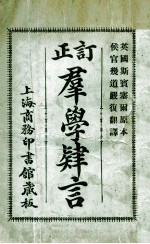 訂正
英國斯賓塞爾原本
侯官幾道嚴復翻譯
羣學肄言
上海商務印書館藏板